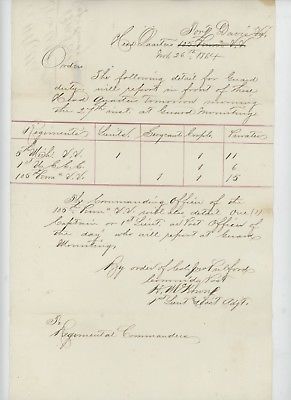 Fort Davis Va.
Head Quarters 105th Penna V.V.
Nov 26th 1864
Orders
The following detail for Guard
duty, will report in front of these
Head Quarters tomorrow morning
the 27th inst. at Guard Mounting
Regiments Lieuts. Sergeant Corpls. Privates
5th Mich. V.V. 1 1 11
1st U.S.S.S. 1 11
105th Penna V.V. 1 1 15
The Commanding Officer of the
105th Penna V.V. will also detail One (1)
Captain or 1st Lieut. as Post Officer of
the day who will report at Guard
Mounting
By order of Col Jno Pulford
Commdg Post
1st Lieut & Post Adjt.
To
Regimental Commanders